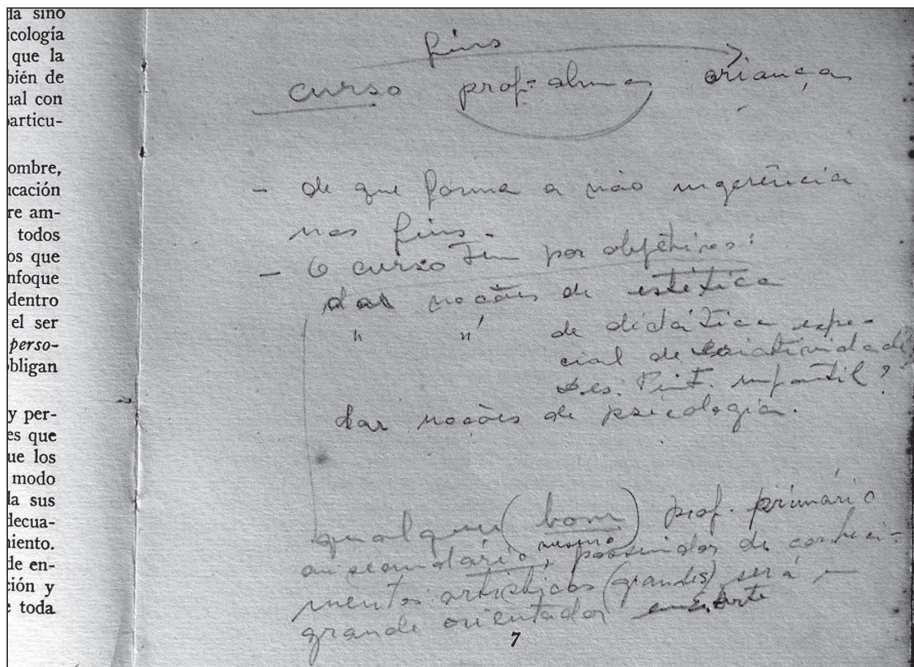 la sino
icología
que la
bién de
ual con
articu-
ombre,
ucación
re am-
todos
os que
nfoque
dentro
el ser
perso-
bligan
y per-
es que
ue los
modo
la sus
decua-
niento.
de en-
ción y
toda
fins
curso prof.-aluno criança
- de que forma a não ingerência
nos fins.
- O curso tem por objetivos:
dar noções de estética
" " de didática espe-
cial de criatividade
Des. Pint. infantil?
dar noções de psicologia.
qualquer (bom) prof. primário
mesmo
ou secundário, possuidor de conheci-
mentos artísticos (grandes) será um
grande orientador
7